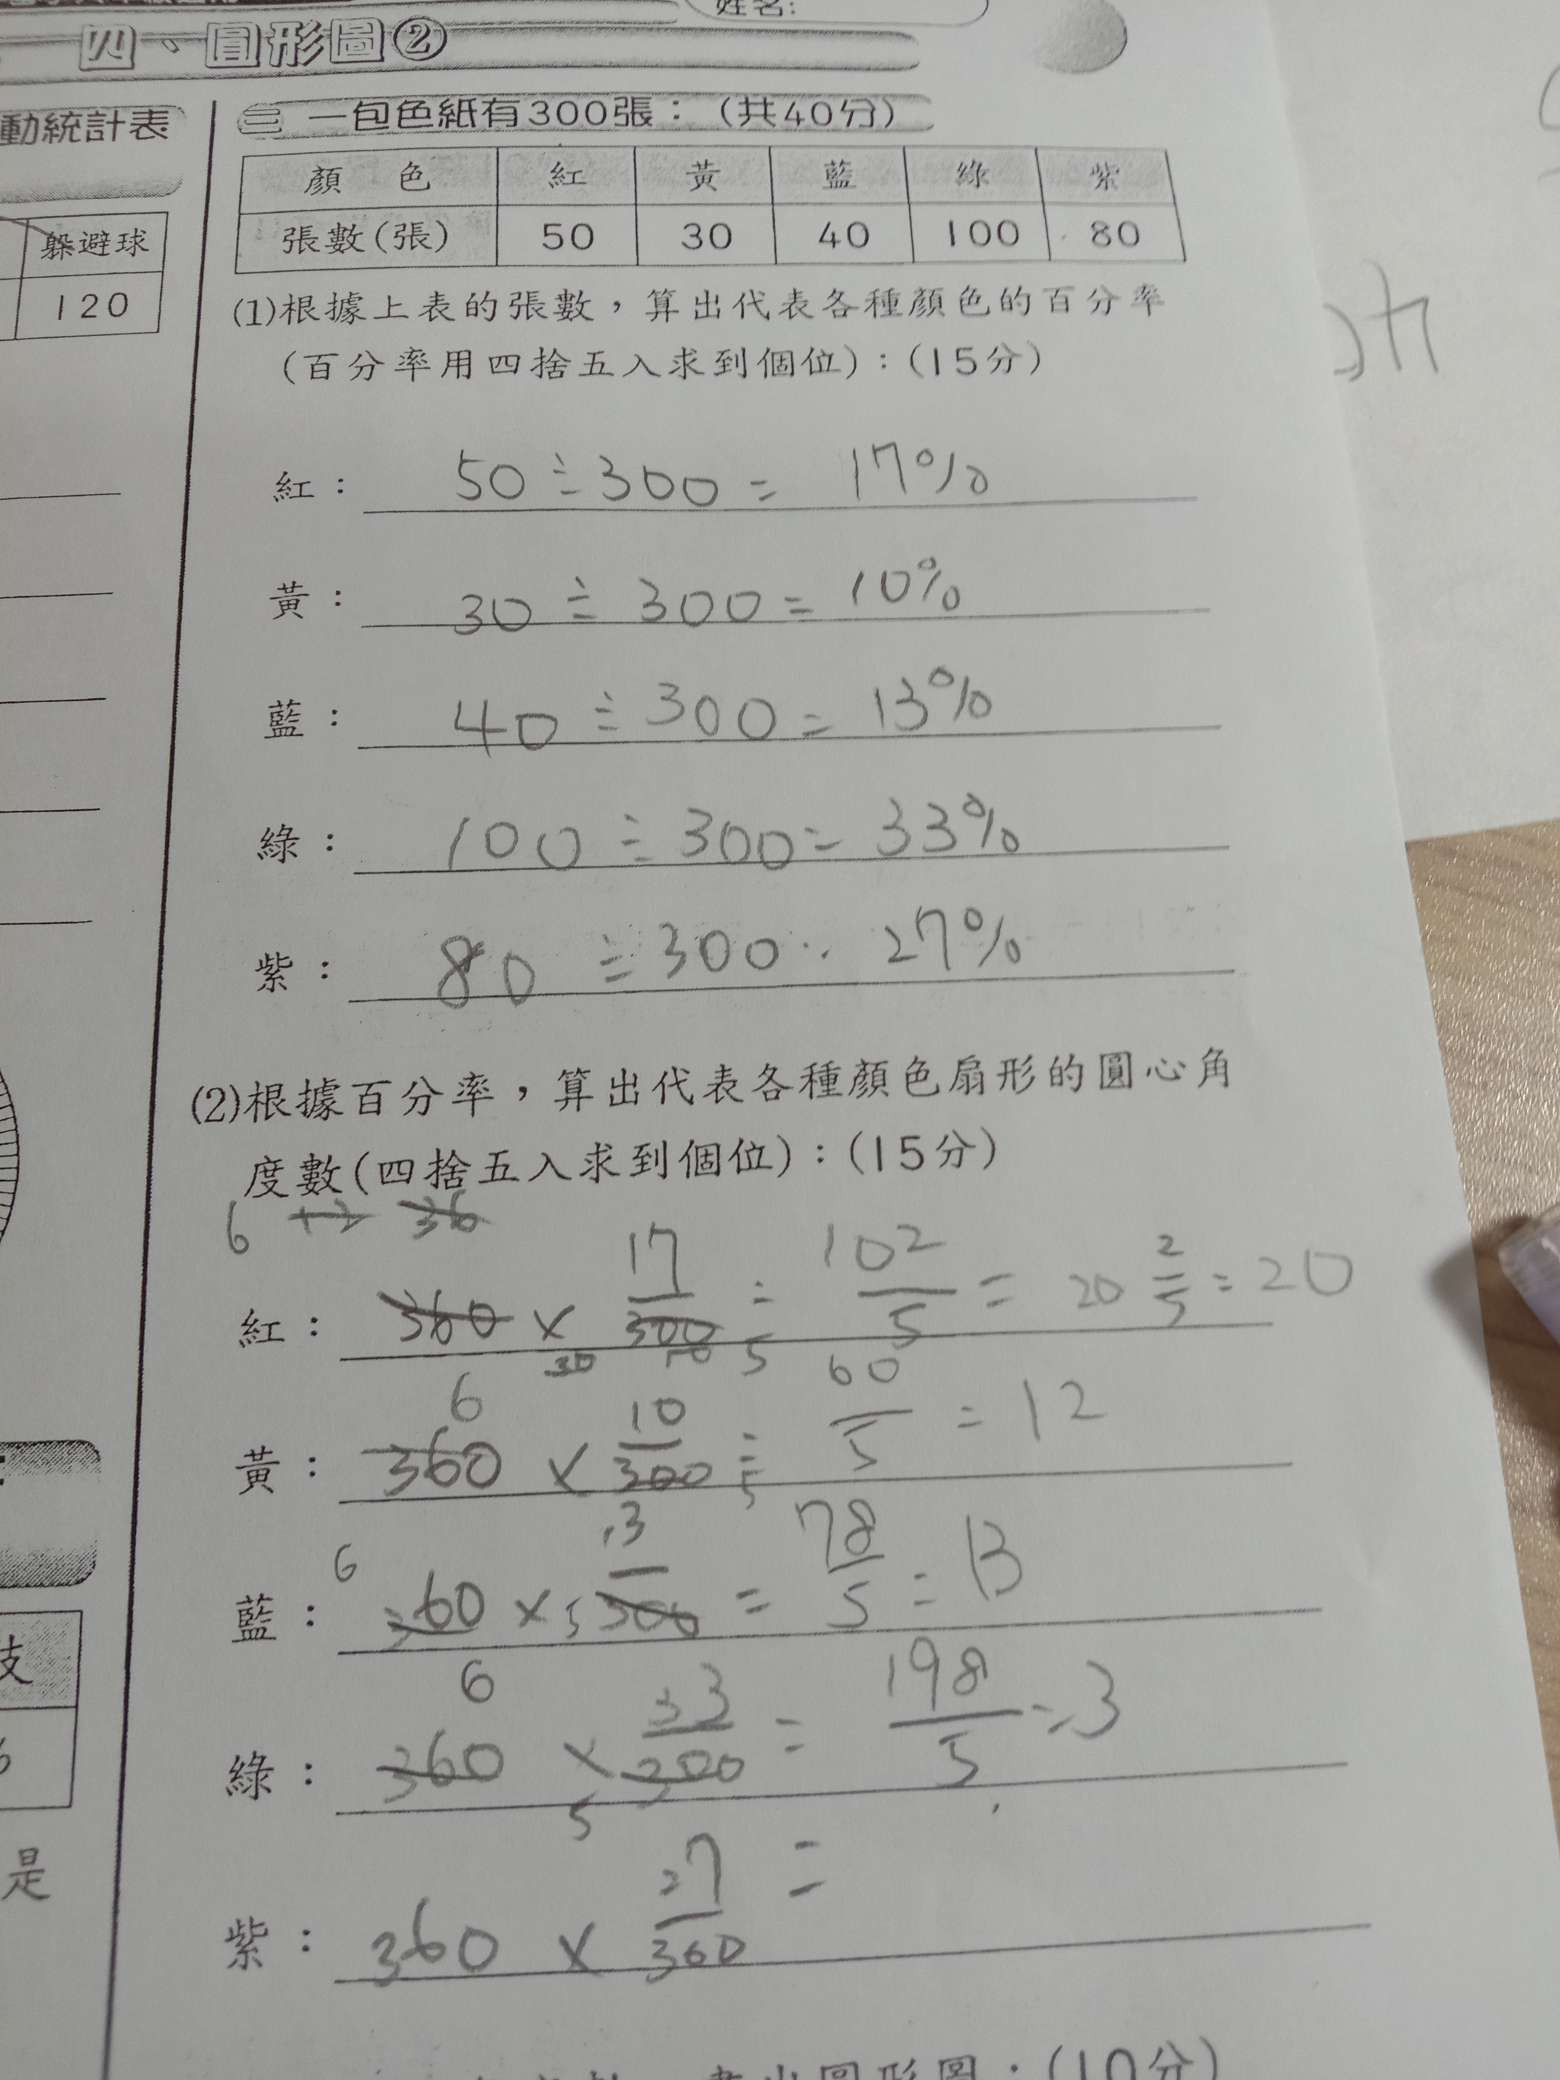 姓名：
四、圓形圖②
動統計表
躲避球
120
三 一包色紙有300張：（共40分）
顏色 紅 黃 藍 綠 紫
張數（張） 50 30 40 100 80
(1)根據上表的張數，算出代表各種顏色的百分率
（百分率用四捨五入求到個位）：（15分）
紅： 50÷300= 17%
黃： 30÷300= 10%
藍： 40÷300= 13%
綠： 100÷300= 33%
紫： 80÷300 27%
(2)根據百分率，算出代表各種顏色扇形的圓心角
度數（四捨五入求到個位）：（15分）
6 36
17 102 2
紅： 360 × 300 = 5 = 20 5 = 20
30 10 5
6 10 60
黃： 360 × 300 = 5 = 12
5
6 13 78
藍： 360 × 5 300 = 5 = 13
6 33 198
綠： 360 × 300 = 5 = 3
5
27 =
紫： 360 × 360
技
是
圓形圖：（10分）